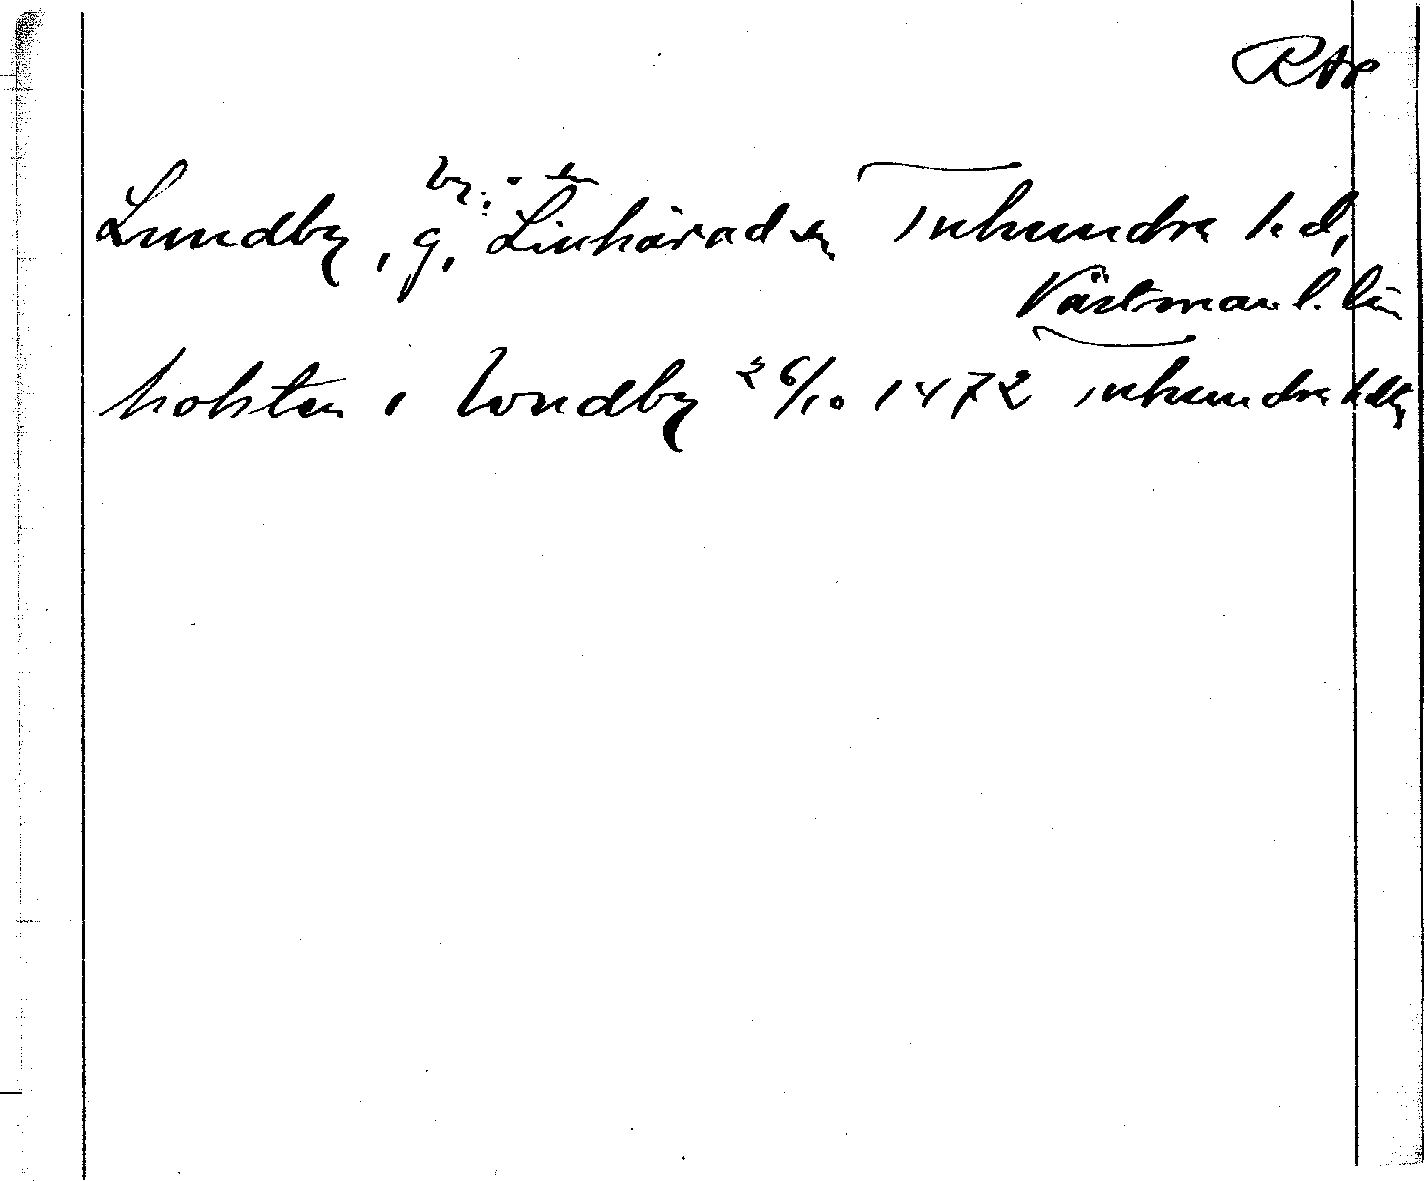 RAp
by i en
Lundby, g, Linhäraden Tnhundra hd,
Västmanl. län
holsten i londby 26/10 1472 inhundra hdbr